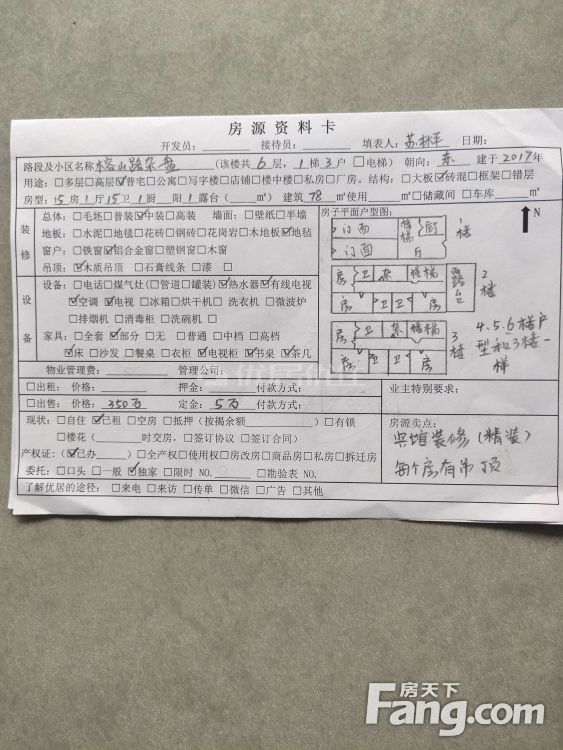 房源资料卡
开发员：  接待员：  填表人：  日期：
路段及小区名称 榕山路杂盘（该楼共6层，1梯3户 □电梯） 朝向：东 建于2017年
用途：□多层□高层☑普宅□公寓□写字楼□店铺□楼中楼□私房□厂房。结构：□大板☑砖混□框架□错层
房型：15房1厅15卫1厨 阳1露台（ ㎡）建筑78㎡使用 ㎡□储藏间□车库 ㎡
装修
总体：□毛坯□普装☑中装□高装 墙面：□壁纸□半墙
地板：□水泥□地毯□花砖□钢砖□花岗岩□木地板☑地毡
窗户：□铁窗☑铝合金窗□塑钢窗□木窗
吊顶：☑木质吊顶 □石膏线条 □漆 □
设备
设备：□电话□煤气灶(□管道□罐装)☑热水器☑有线电视
☑空调 ☑电视 □冰箱□烘干机□ 洗衣机 □微波炉
□排烟机 □消毒柜 □洗碗机 □
家具：□全套 ☑部分□无 □普通 □中档 □高档
☑床 □沙发 □餐桌 □衣柜 ☑电视柜 ☑书桌 ☑茶几
房子平面户型图：
N
门面 楼梯 厨
门面 厅
1楼
房 卫 杂 楼梯 露台
房 卫 卫 房
2楼
房 卫 杂 楼梯
房 卫 卫 房
3楼
4.5.6楼户型和3楼一样
物业管理费： 管理公司：
□出租：价格： 押金： 付款方式：
□出售：价格：350万 定金：5万 付款方式：
业主特别要求：
现状：□自住 ☑已租 □空房 □抵押（按揭余额 ）□有锁
□楼花（ 时交房，□签订协议 □签订合同）
产权证：(☑已办 )□全产权□使用权□房改房□商品房□私房□拆迁房
委托：□口头 □一般 ☑独家 □限时 NO. □勘验表 NO.
房源卖点：
宾馆装修(精装)
每个房有吊顶
了解优居的途径：□来电 □来访 □传单 □微信 □广告 □其他
房天下
Fang.com